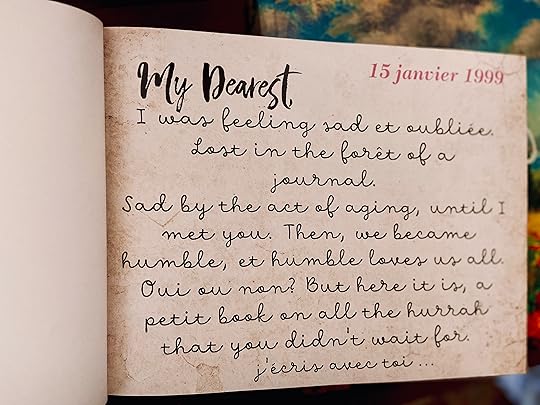 My Dearest,
15 janvier 1999
I was feeling sad et oubliée.
Lost in the forêt of a
journal.
Sad by the act of aging, until I
met you. Then, we became
humble, et humble loves us all.
Oui ou non? But here it is, a
petit book on all the hurrah
that you didn't wait for.
j'écris avec toi ...